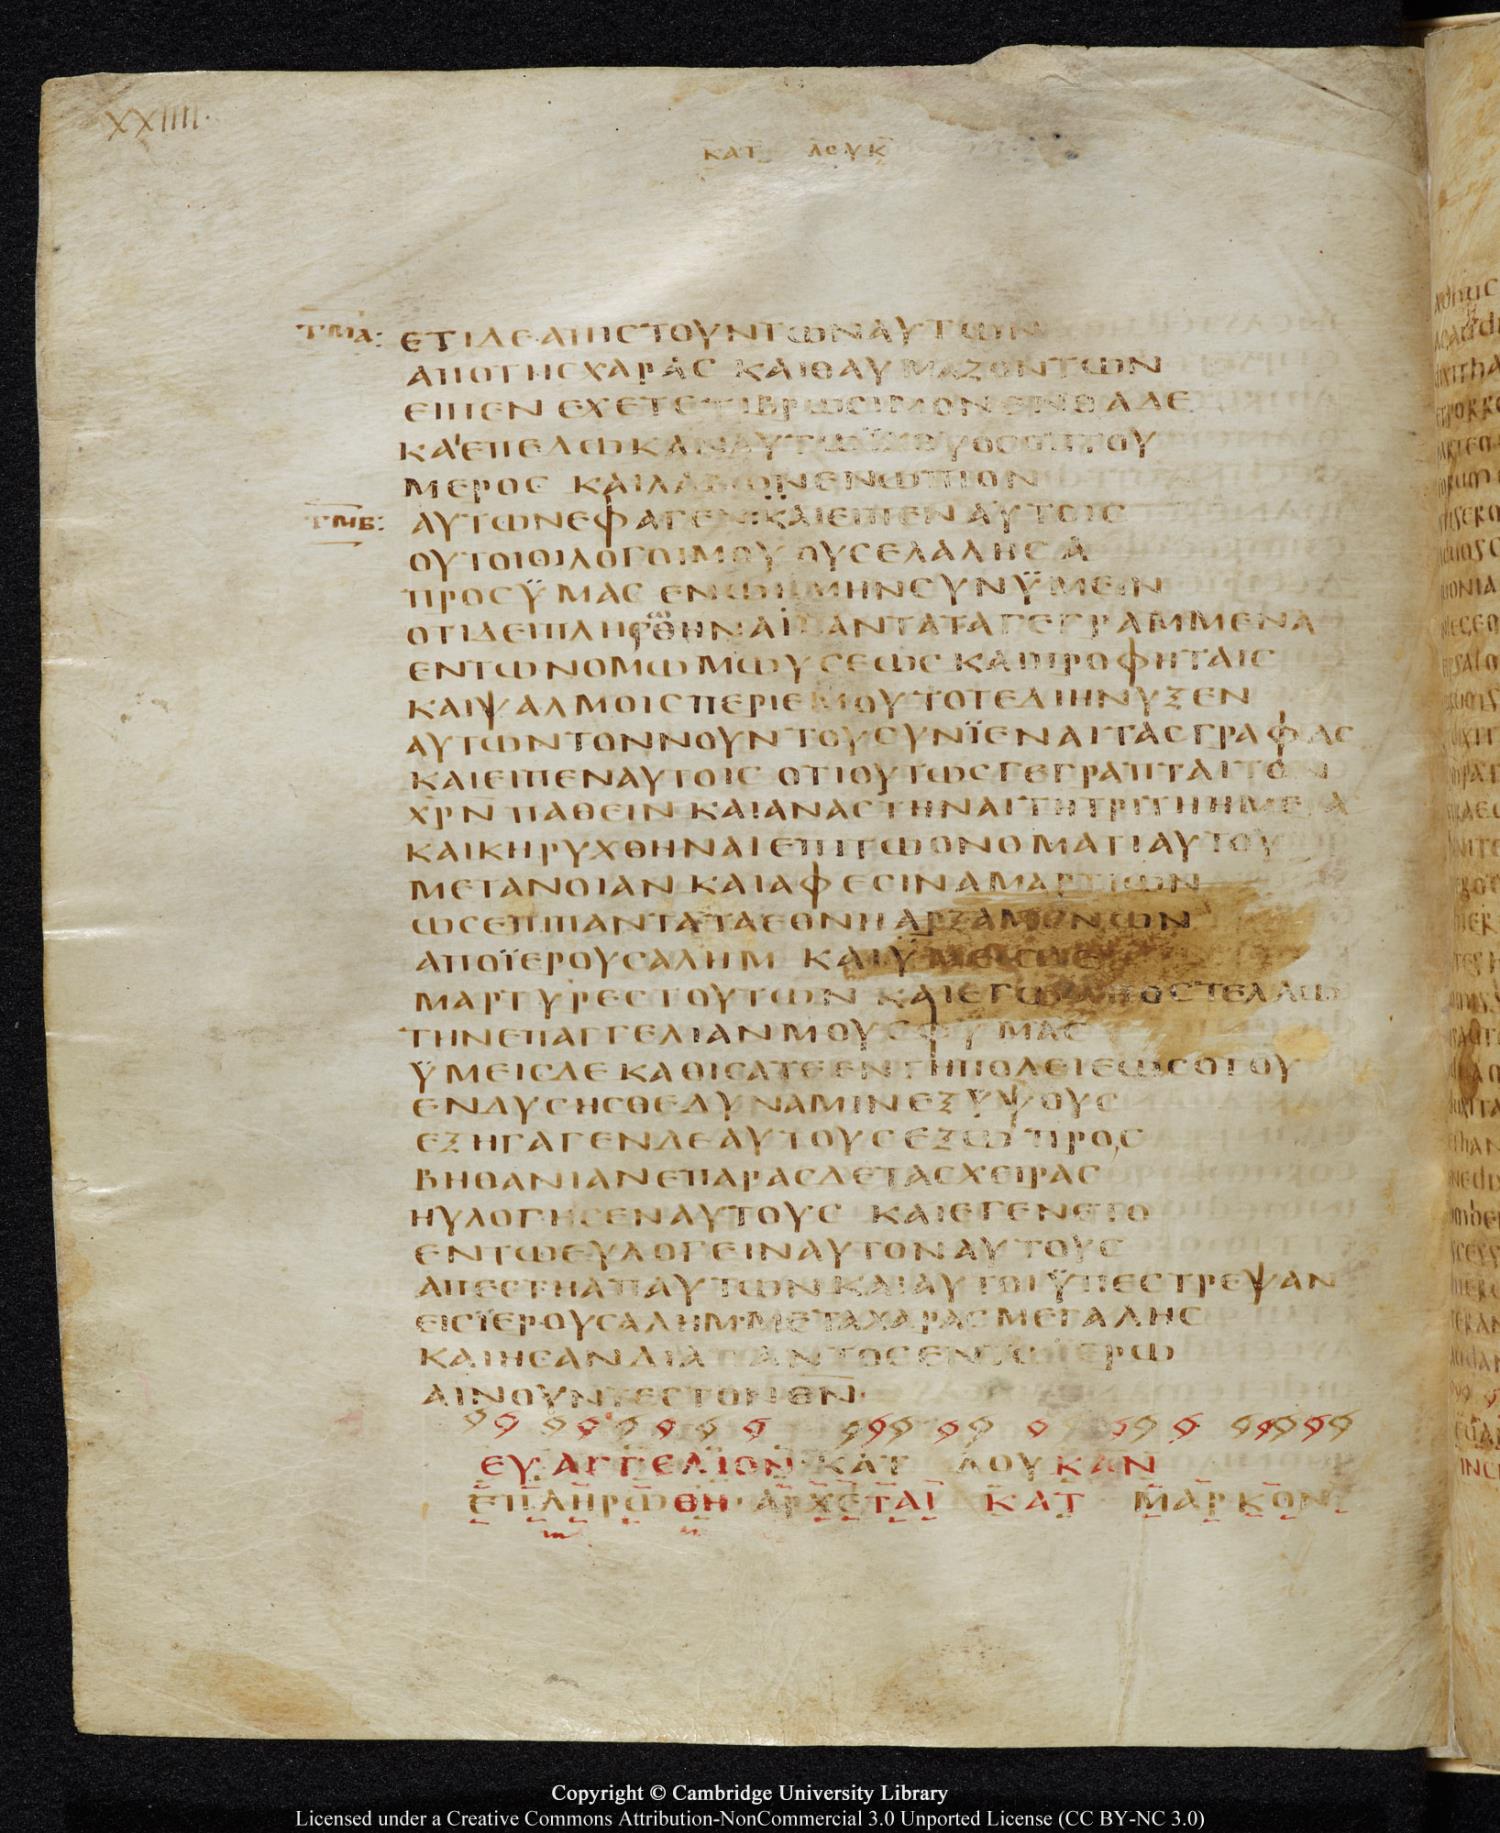 XXIIII·
ΚΑΤ ΛΟΥΚ
ΤΜΑ: ΕΤΙΔΕΑΠΙΣΤΟΥΝΤΩΝΑΥΤΩΝ
ΑΠΟΤΗΣΧΑΡΑΣ ΚΑΙΘΑΥΜΑΖΟΝΤΩΝ
ΕΙΠΕΝ ΕΧΕΤΕΤΙΒΡΩΣΙΜΟΝΕΝΘΑΔΕ
ΜΕΡΟΣ ΚΑΙΛΑΒΩΝΕΝΩΠΙΟΝ
ΤΜΒ: ΑΥΤΩΝΕΦΑΓΕΝ:ΚΑΙΕΙΠΕΝ ΑΥΤΟΙΣ
ΟΥΤΟΙΟΙΛΟΓΟΙΜΟΥ ΟΥΣΕΛΑΛΗΣΑ
ΠΡΟΣΫΜΑΣ ΕΝΩΗΜΗΝΣΥΝΫΜΕΙΝ
ΑΝΤΑΤΑΓΕΓΡΑΜΜΕΝΑ
ΕΝΤΩΝΟΜΩΜΩΥΣΕΩΣ ΚΑΙΠΡΟΦΗΤΑΙΣ
ΚΑΙΨΑΛΜΟΙΣΠΕΡΙΕΜΟΥΤΟΤΕΔΙΗΝΥΞΕΝ
ΑΥΤΩΝΤΟΝΝΟΥΝΤΟΥΣΥΝΪΕΝΑΙΤΑΣΓΡΑΦΑΣ
ΚΑΙΕΙΠΕΝΑΥΤΟΙΣ ΟΤΙΟΥΤΩΣΓΕΓΡΑΠΤΑΙΤΟΝ
ΧΡΝ ΠΑΘΕΙΝ ΚΑΙΑΝΑΣΤΗΝΑΙΤΗΤΡΙΤΗΗΜΕΡΑ
ΚΑΙΚΗΡΥΧΘΗΝΑΙΕΠΙΤΩΟΝΟΜΑΤΙΑΥΤΟΥ
ΜΕΤΑΝΟΙΑΝ ΚΑΙΑΦΕΣΙΝΑΜΑΡΤΙΩΝ
ΩΣΕΠΙΠΑΝΤΑΤΑΕΘΝΗ ΑΡΞΑΜΕΝΩΝ
ΑΠΟΪΕΡΟΥΣΑΛΗΜ ΚΑΙΫΜΕΙΣΔΕ
ΜΑΡΤΥΡΕΣΤΟΥΤΩΝ ΚΑΙΕΓΩΑΠΟΣΤΕΛΛΩ
ΤΗΝΕΠΑΓΓΕΛΙΑΝΜΟΥΕΦΥΜΑΣ
ΫΜΕΙΣΔΕ ΚΑΘΙΣΑΤΕΕΝΤΗΠΟΛΕΙΕΩΣΟΤΟΥ
ΕΝΔΥΣΗΣΘΕΔΥΝΑΜΙΝΕΞΥΨΟΥΣ
ΕΞΗΓΑΓΕΝΔΕΑΥΤΟΥΣΕΞΩ ΠΡΟΣ
ΒΗΘΑΝΙΑΝΕΠΑΡΑΣΔΕΤΑΣΧΕΙΡΑΣ
ΗΥΛΟΓΗΣΕΝΑΥΤΟΥΣ ΚΑΙΕΓΕΝΕΤΟ
ΕΝΤΩΕΥΛΟΓΕΙΝΑΥΤΟΝΑΥΤΟΥΣ
ΑΠΕΣΤΗΑΠΑΥΤΩΝΚΑΙΑΥΤΟΙΫΠΕΣΤΡΕΨΑΝ
ΕΙΣΪΕΡΟΥΣΑΛΗΜ·ΜΕΤΑΧΑΡΑΣΜΕΓΑΛΗΣ
ΚΑΙΗΣΑΝΔΙΑΠΑΝΤΟΣΕΝΤΩΪΕΡΩ
ΑΙΝΟΥΝΤΕΣΤΟΝΘΝ·
ΕΥΑΓΓΕΛΙΟΝ·ΚΑΤ ΛΟΥΚΑΝ
ΕΠΛΗΡΩΘΗ·ΑΡΧΕΤΑΙ ΚΑΤ ΜΑΡΚΟΝ
Copyright © Cambridge University Library
Licensed under a Creative Commons Attribution-NonCommercial 3.0 Unported License (CC BY-NC 3.0)